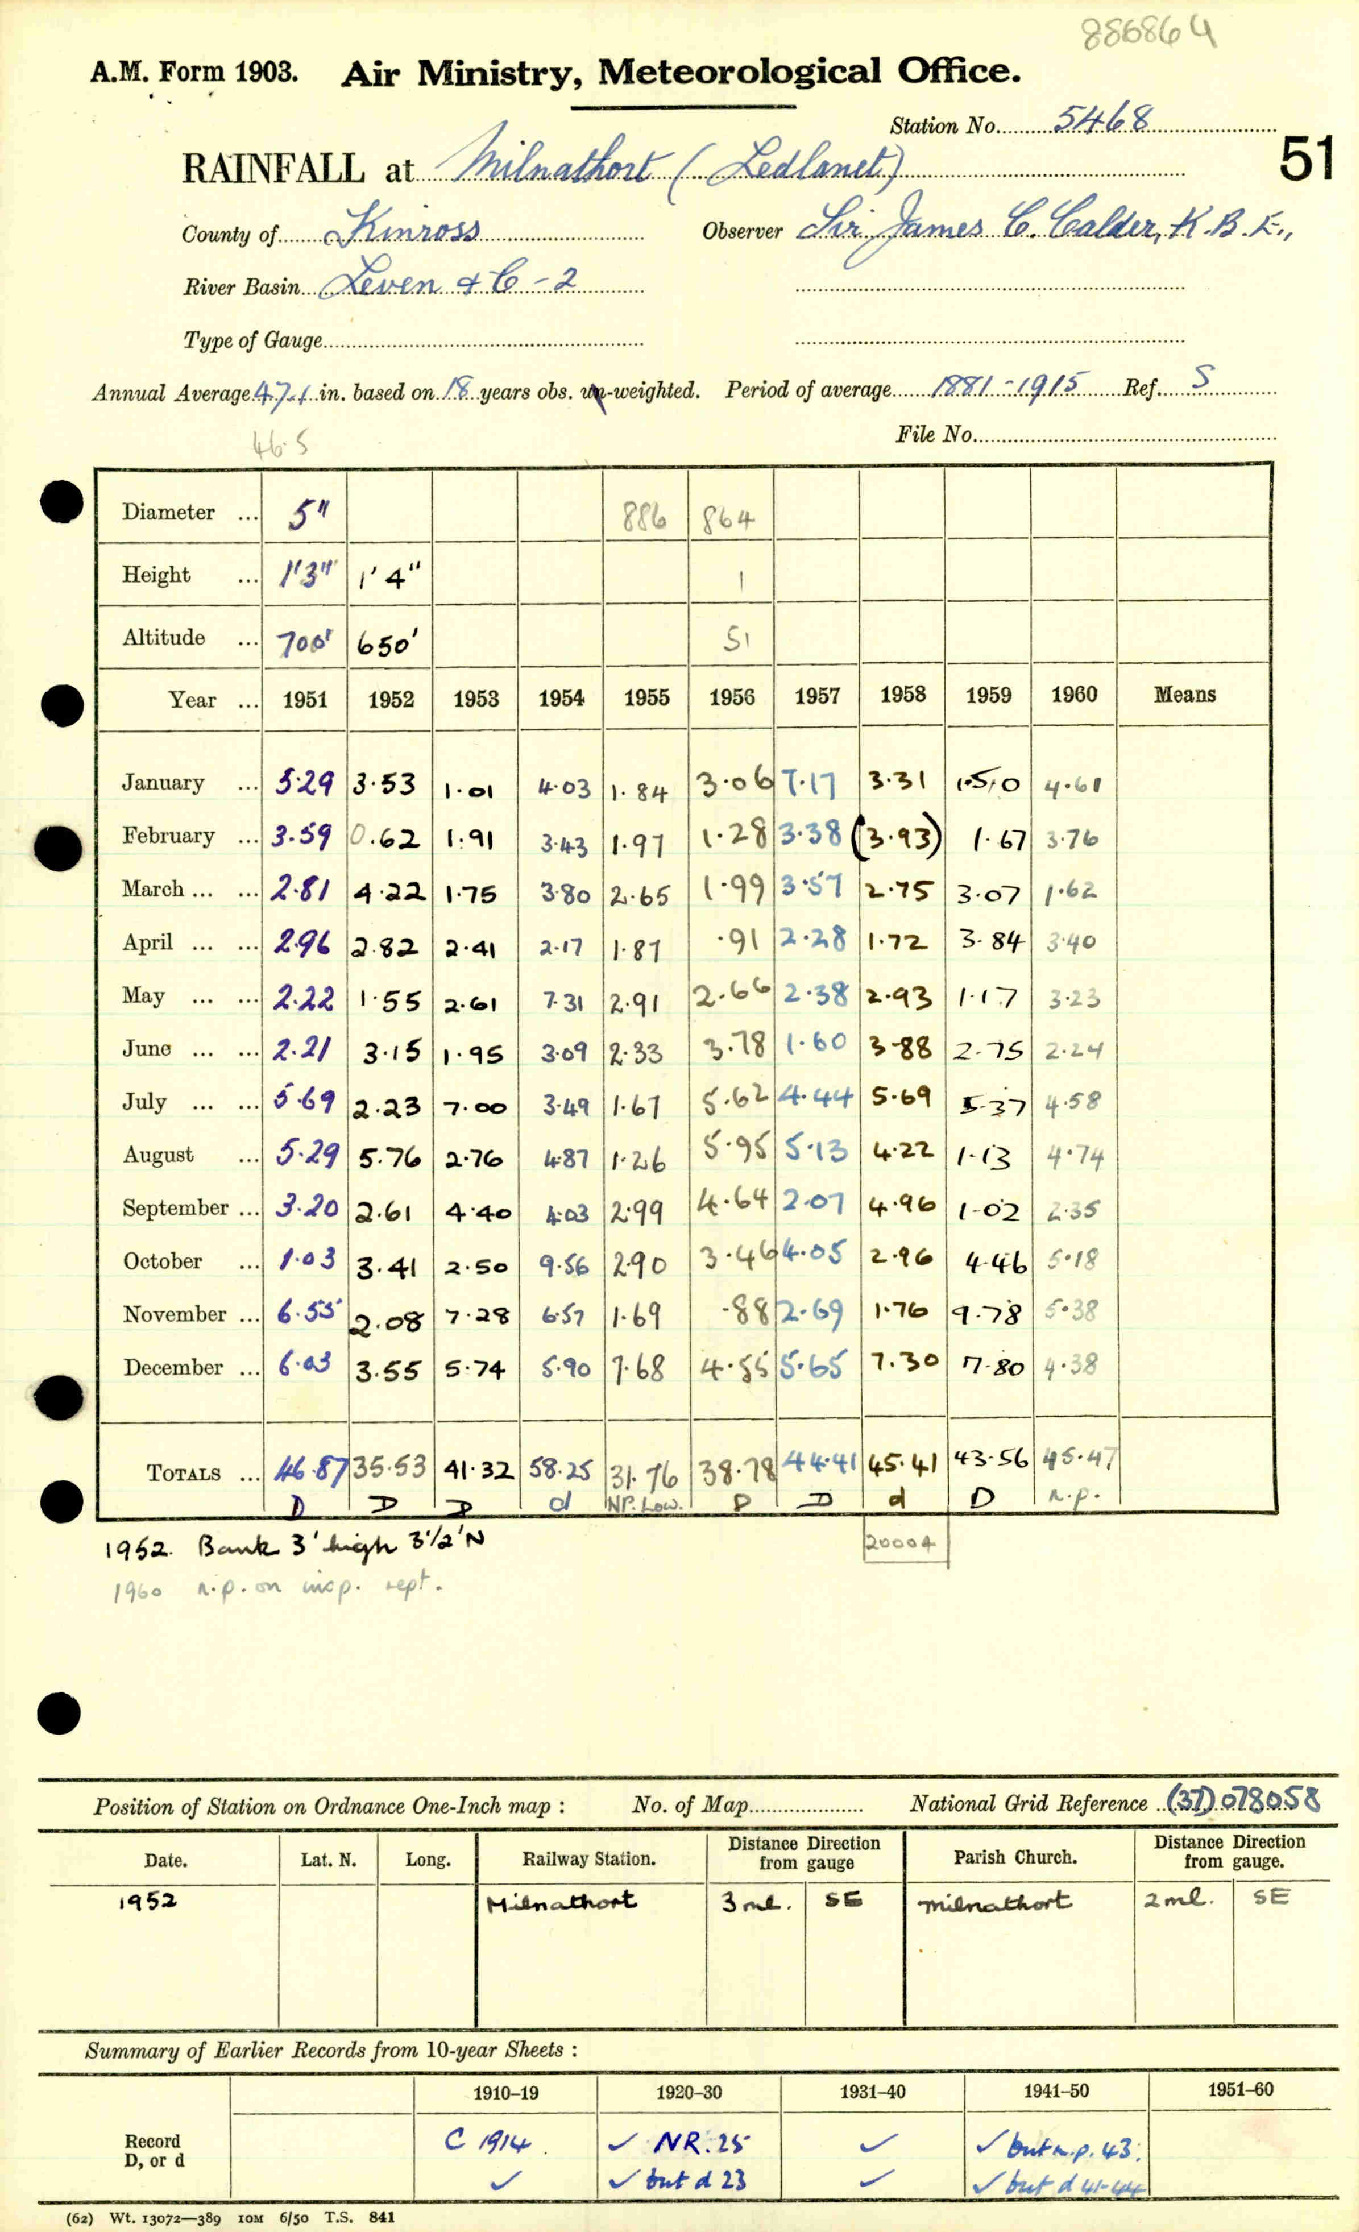 886864
A.M. Form 1903. Air Ministry, Meteorological Office.
Station No. 5468
51
RAINFALL at Milnathort (Ledlanet)
County of Kinross Observer Sir James C. Calder, K.B.E.,
River Basin Leven & C - 2
Type of Gauge
Annual Average 47.1 in. based on 18 years obs. un-weighted. Period of average 1881-1915 Ref. S
46.5 File No.
Diameter ... 5" 886 864
Height ... 1'3" 1'4" 1
Altitude ... 700' 650' 51
Year ... 1951 1952 1953 1954 1955 1956 1957 1958 1959 1960 Means
January ... 5.29 3.53 1.01 4.03 1.84 3.06 7.17 3.31 1.50 4.61
February ... 3.59 0.62 1.91 3.43 1.97 1.28 3.38 (3.93) 1.67 3.76
March ... ... 2.81 4.22 1.75 3.80 2.65 1.99 3.57 2.75 3.07 1.62
April ... ... 2.96 2.82 2.41 2.17 1.87 .91 2.28 1.72 3.84 3.40
May ... ... 2.22 1.55 2.61 7.31 2.91 2.66 2.38 2.93 1.17 3.23
June ... ... 2.21 3.15 1.95 3.09 2.33 3.78 1.60 3.88 2.75 2.24
July ... ... 5.69 2.23 7.00 3.49 1.67 5.62 4.44 5.69 5.37 4.58
August ... 5.29 5.76 2.76 4.87 1.26 5.95 5.13 4.22 1.13 4.74
September ... 3.20 2.61 4.40 4.03 2.99 4.64 2.07 4.96 1.02 2.35
October ... 1.03 3.41 2.50 9.56 2.90 3.46 4.05 2.96 4.46 5.18
November ... 6.55 2.08 7.28 6.57 1.69 .88 2.69 1.76 9.78 5.38
December ... 6.03 3.55 5.74 5.90 7.68 4.55 5.65 7.30 7.80 4.38
TOTALS ... 46.87 35.53 41.32 58.25 31.76 38.78 44.41 45.41 43.56 45.47
D D D d NP. Low. D D d D n.p.
1952. Bank 3' high 3½' N 20004
1960 n.p. on insp. rept.
Position of Station on Ordnance One-Inch map : No. of Map National Grid Reference (37)078058
Date. Lat. N. Long. Railway Station. Distance Direction from gauge Parish Church. Distance Direction from gauge.
1952 Milnathort 3 ml. SE Milnathort 2 ml. SE
Summary of Earlier Records from 10-year Sheets :
1910-19 1920-30 1931-40 1941-50 1951-60
Record C 1914 ✓ NR. 25 ✓ ✓ but n.p. 43.
D, or d ✓ ✓ but d 23 ✓ ✓ but d 41-44
(62) Wt. 13072—389 10M 6/50 T.S. 841